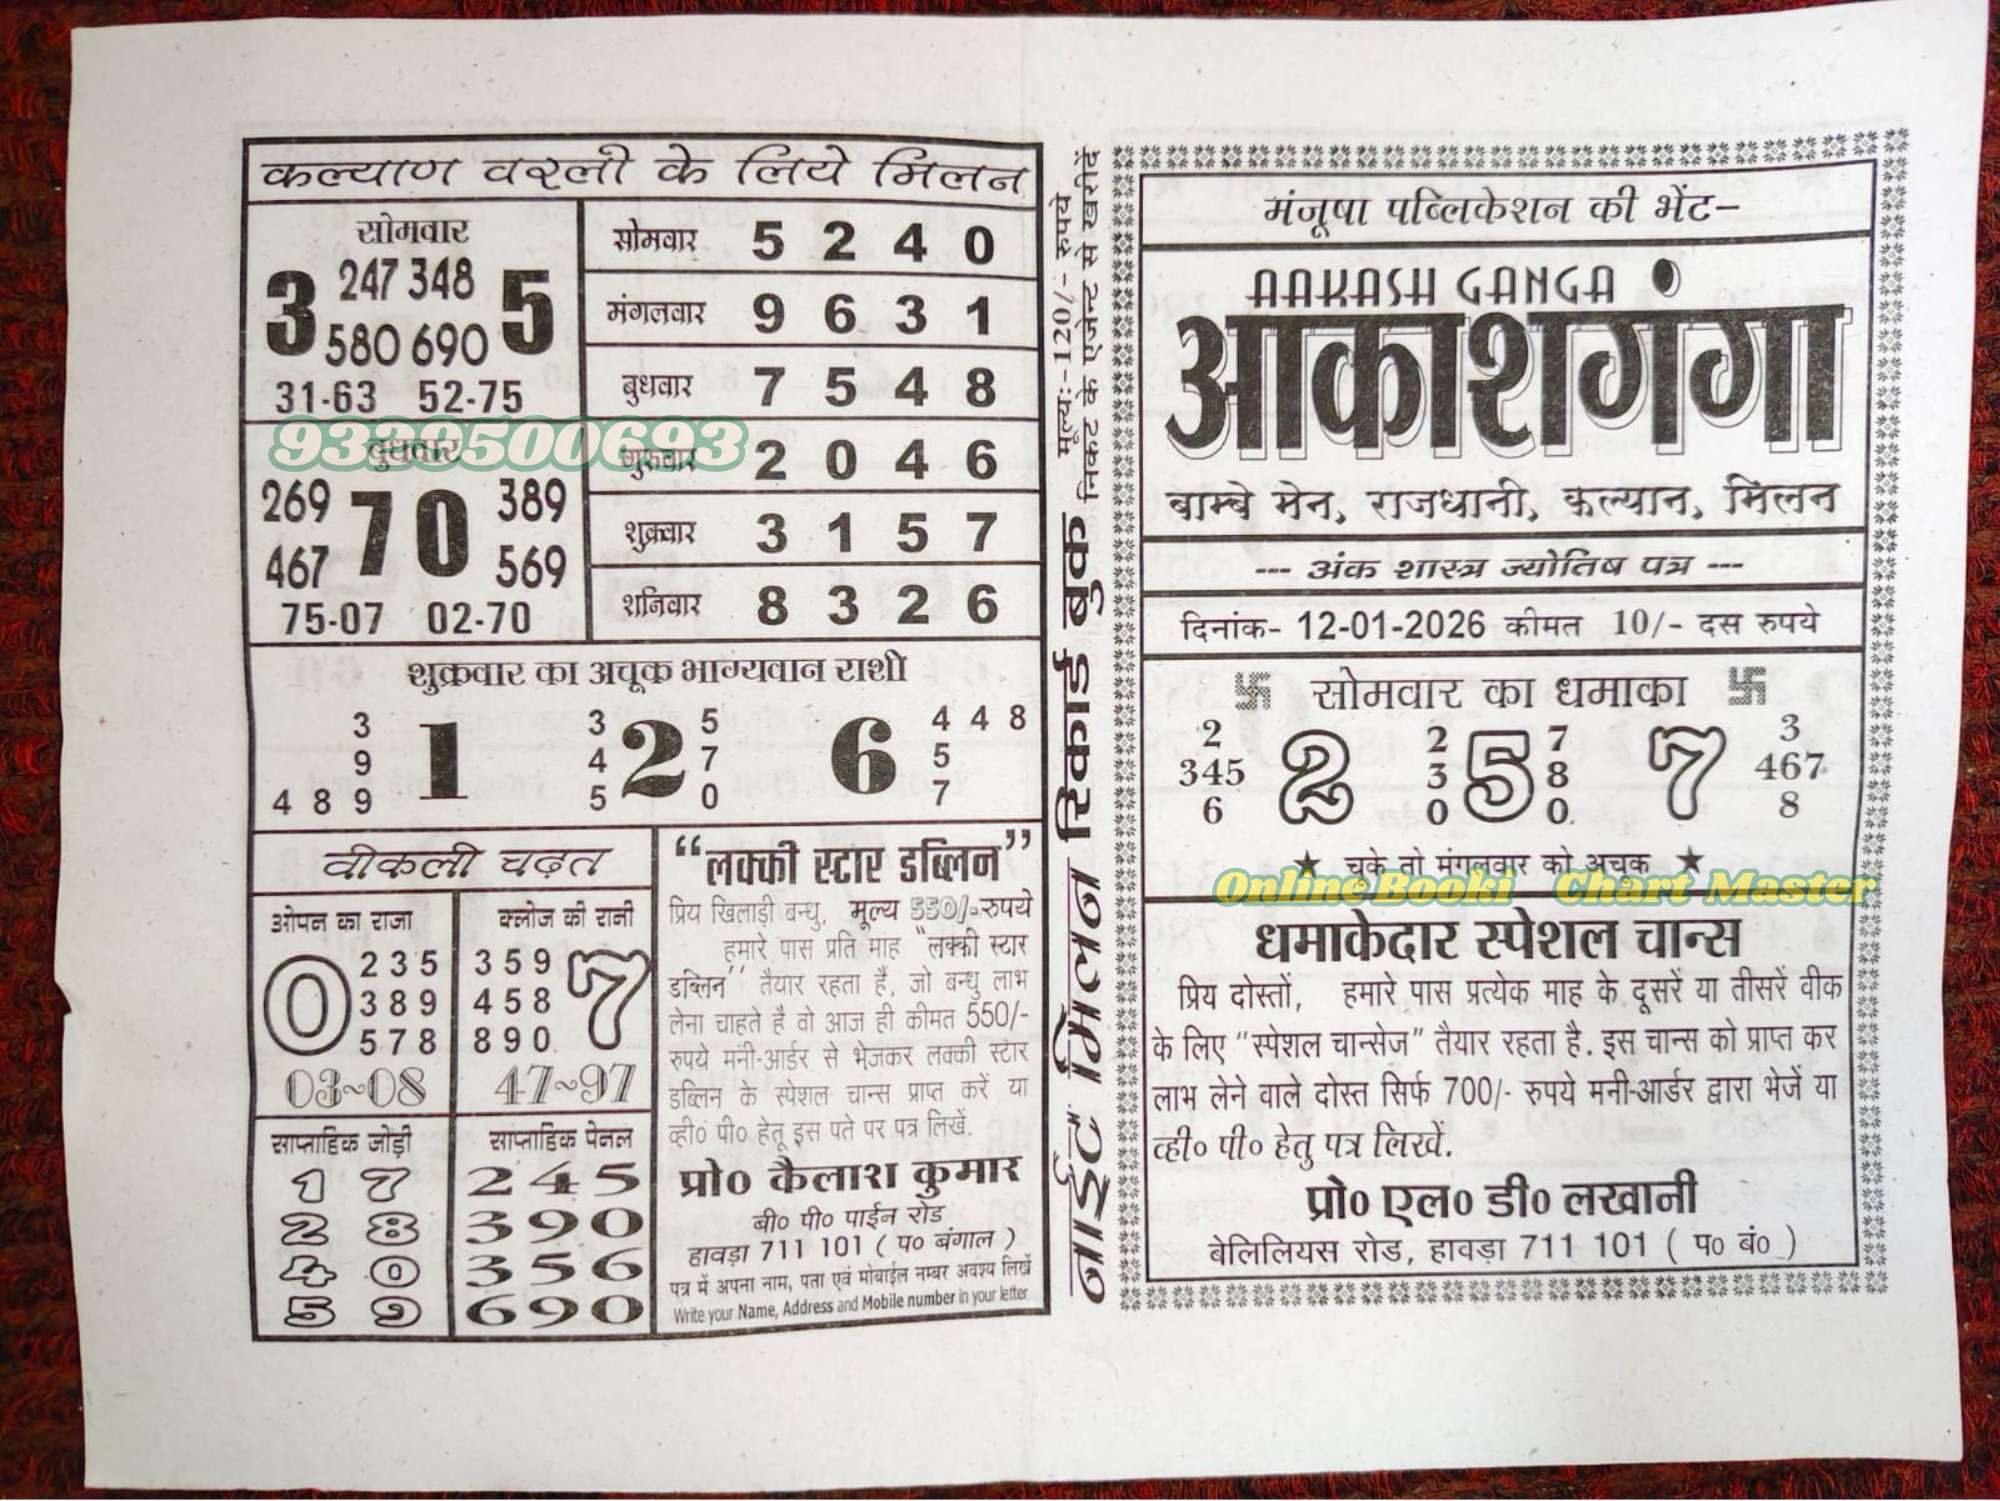 कल्याण वरली के लिये मिलन
सोमवार
3 247 348 5
580 690
31-63 52-75
9339500693
बुधवार
269 70 389
467 569
75-07 02-70
सोमवार 5 2 4 0
मंगलवार 9 6 3 1
बुधवार 7 5 4 8
गुरुवार 2 0 4 6
शुक्रवार 3 1 5 7
शनिवार 8 3 2 6
शुक्रवार का अचूक भाग्यवान राशी
3 3 5 4 4 8
9 1 4 2 7 6 5
4 8 9 5 0 7
वीकली चढ़त
ओपन का राजा
0 2 3 5
3 8 9
5 7 8
03~08
क्लोज की रानी
3 5 9 7
4 5 8
8 9 0
47~97
साप्ताहिक जोड़ी
1 7
2 8
4 0
5 9
साप्ताहिक पेनल
2 4 5
3 9 0
3 5 6
6 9 0
“लक्की स्टार डब्लिन”
प्रिय खिलाड़ी बन्धु, मूल्य 550/-रुपये
हमारे पास प्रति माह “लक्की स्टार
डब्लिन” तैयार रहता है, जो बन्धु लाभ
लेना चाहते है वो आज ही कीमत 550/-
रुपये मनी-आर्डर से भेजकर लक्की स्टार
डब्लिन के स्पेशल चान्स प्राप्त करें या
व्ही० पी० हेतू इस पते पर पत्र लिखें.
प्रो० कैलाश कुमार
बी० पी० पाईन रोड
हावड़ा 711 101 ( प० बंगाल )
पत्र में अपना नाम, पता एवं मोबाईल नम्बर अवश्य लिखें
Write your Name, Address and Mobile number in your letter
नाईट मिलन रिकार्ड बुक मूल्य:-120/- रुपये
निकट के एजेन्ट से खरीदें
मंजूषा पब्लिकेशन की भेंट-
AAKASH GANGA
आकाशगंगा
बाम्बे मेन, राजधानी, कल्यान, मिलन
--- अंक शास्त्र ज्योतिष पत्र ---
दिनांक- 12-01-2026 कीमत 10/- दस रुपये
सोमवार का धमाका
2 2 7 3
345 2 3 5 8 7 467
6 0 0 8
चुके तो मंगलवार को अचूक
Online Booki Chart Master
धमाकेदार स्पेशल चान्स
प्रिय दोस्तों, हमारे पास प्रत्येक माह के दूसरें या तीसरें वीक
के लिए “स्पेशल चान्सेज” तैयार रहता है. इस चान्स को प्राप्त कर
लाभ लेने वाले दोस्त सिर्फ 700/- रुपये मनी-आर्डर द्वारा भेजें या
व्ही० पी० हेतु पत्र लिखें.
प्रो० एल० डी० लखानी
बेलिलियस रोड, हावड़ा 711 101 ( प० बं० )